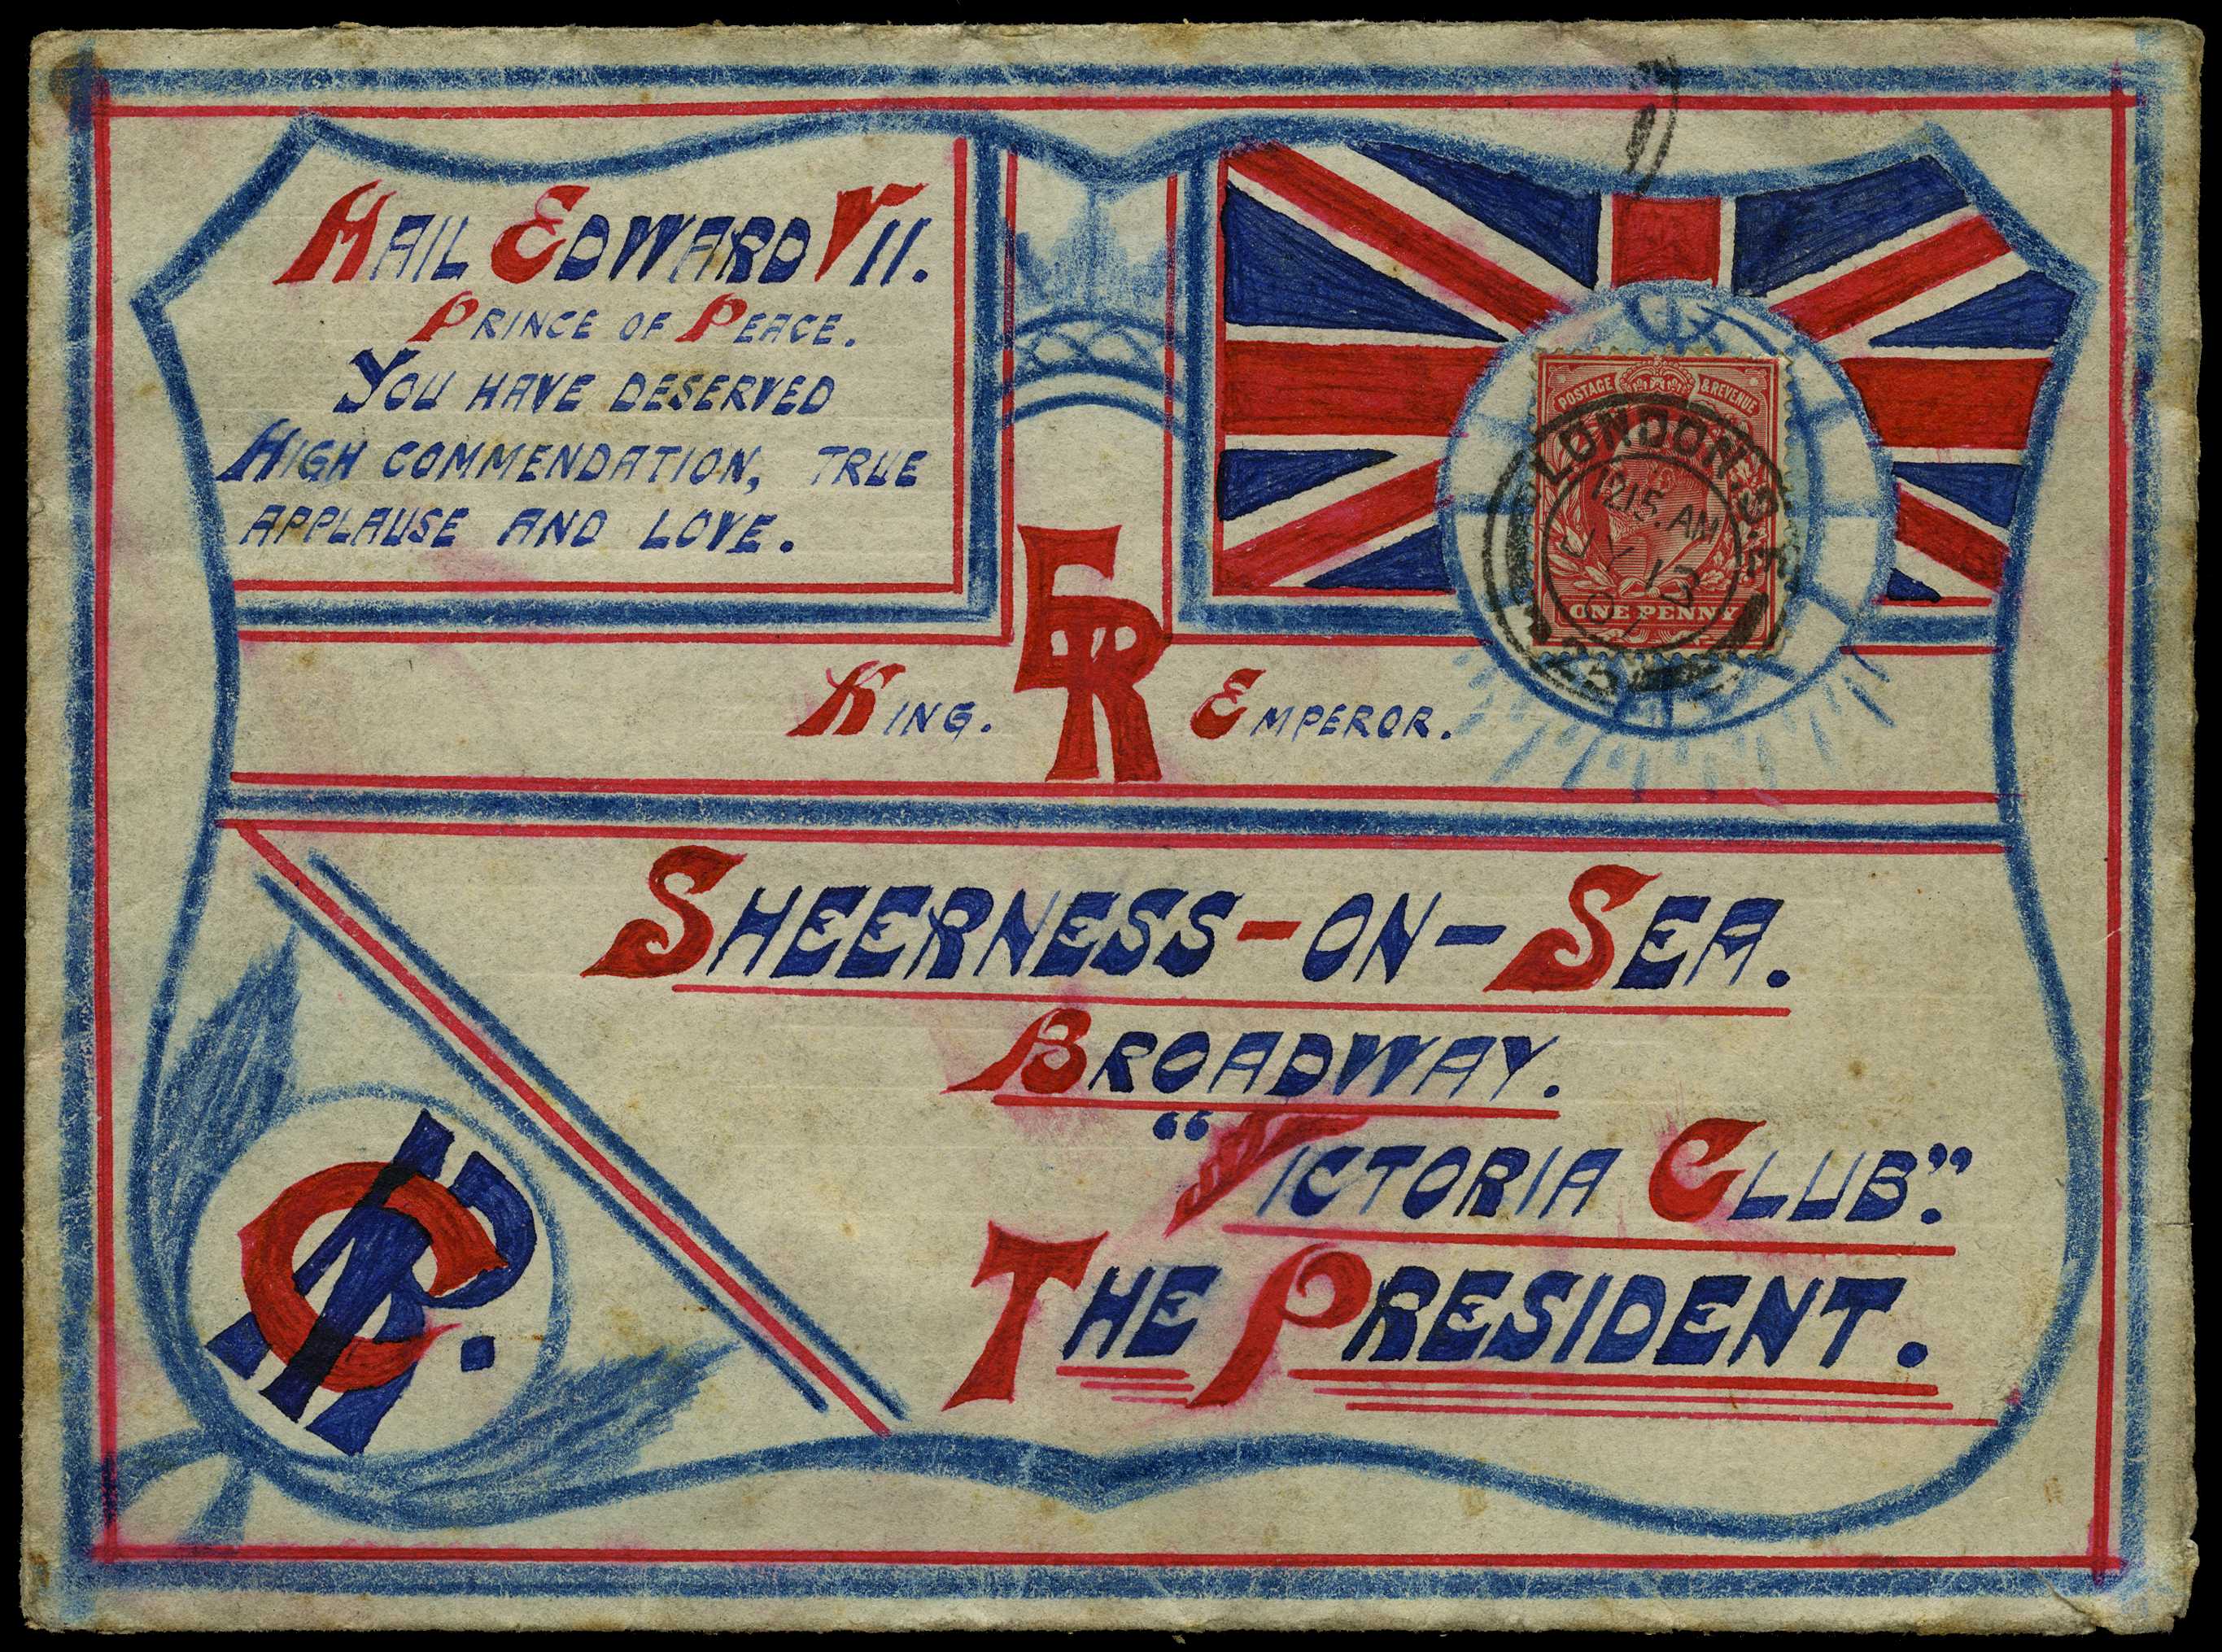 HAIL EDWARD VII.
PRINCE OF PEACE.
YOU HAVE DESERVED
HIGH COMMENDATION, TRUE
APPLAUSE AND LOVE.
POSTAGE & REVENUE
LONDON. S.E.
12 15. AM
ONE PENNY
KING. ER EMPEROR.
SHEERNESS-ON-SEA.
BROADWAY.
“VICTORIA CLUB”.
THE PRESIDENT.